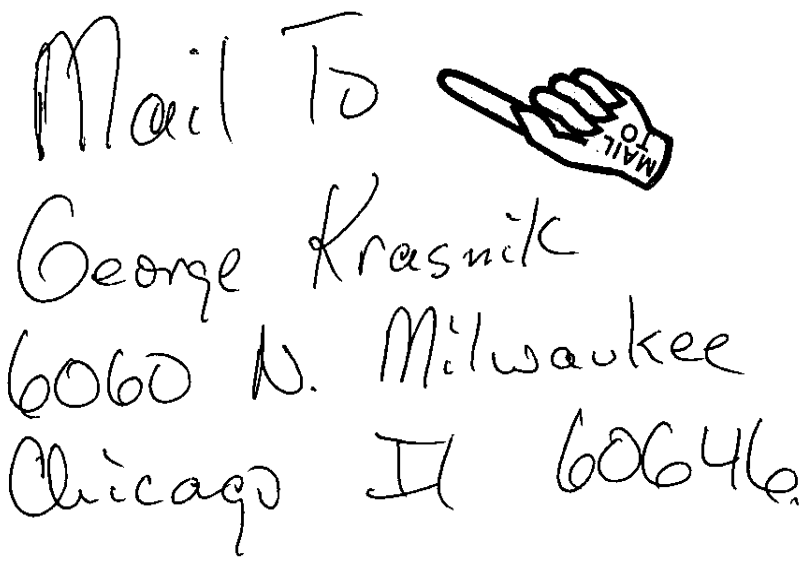 Mail To
MAIL TO
George Krasnik
6060 N. Milwaukee
Chicago Il 60646